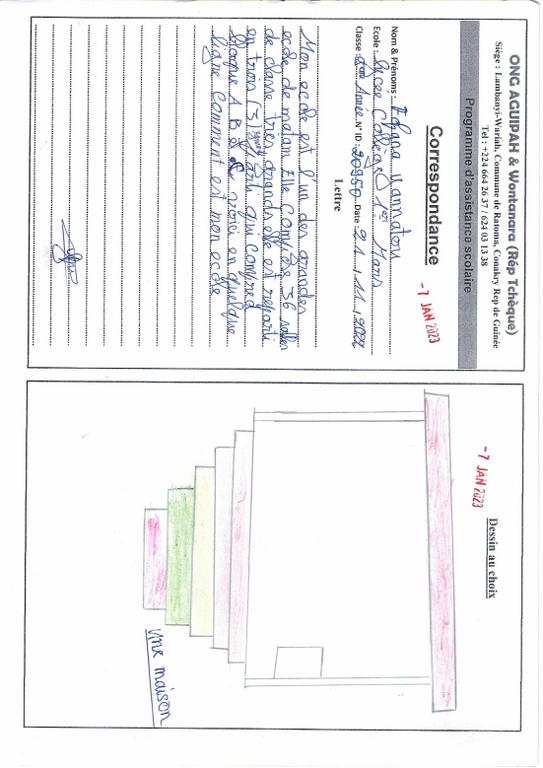 ONG AGUIPAH & Wontanara (Rép Tchèque)
Siège : Lambanyi-Wariah, Commune de Ratoma, Conakry Rep de Guinée
Tel : +224 664 26 37 / 624 03 13 38
Programme d'assistance scolaire
Correspondance
-7 JAN 2023
Nom & Prénoms : Mannatou
Ecole : Lycee College 1er Mars
Classe : Année N° ID : 20950 Date : 21 / 11 / 2022
Lettre
Mon ecole est l'un des grandes
ecole de matam Elle 36 salles
de classe tres grands elle est reparti
en trois (3) qui
bloque A B et C voici en quelque
ligne Comment est mon ecole
-7 JAN 2023
Dessin au choix
une maison